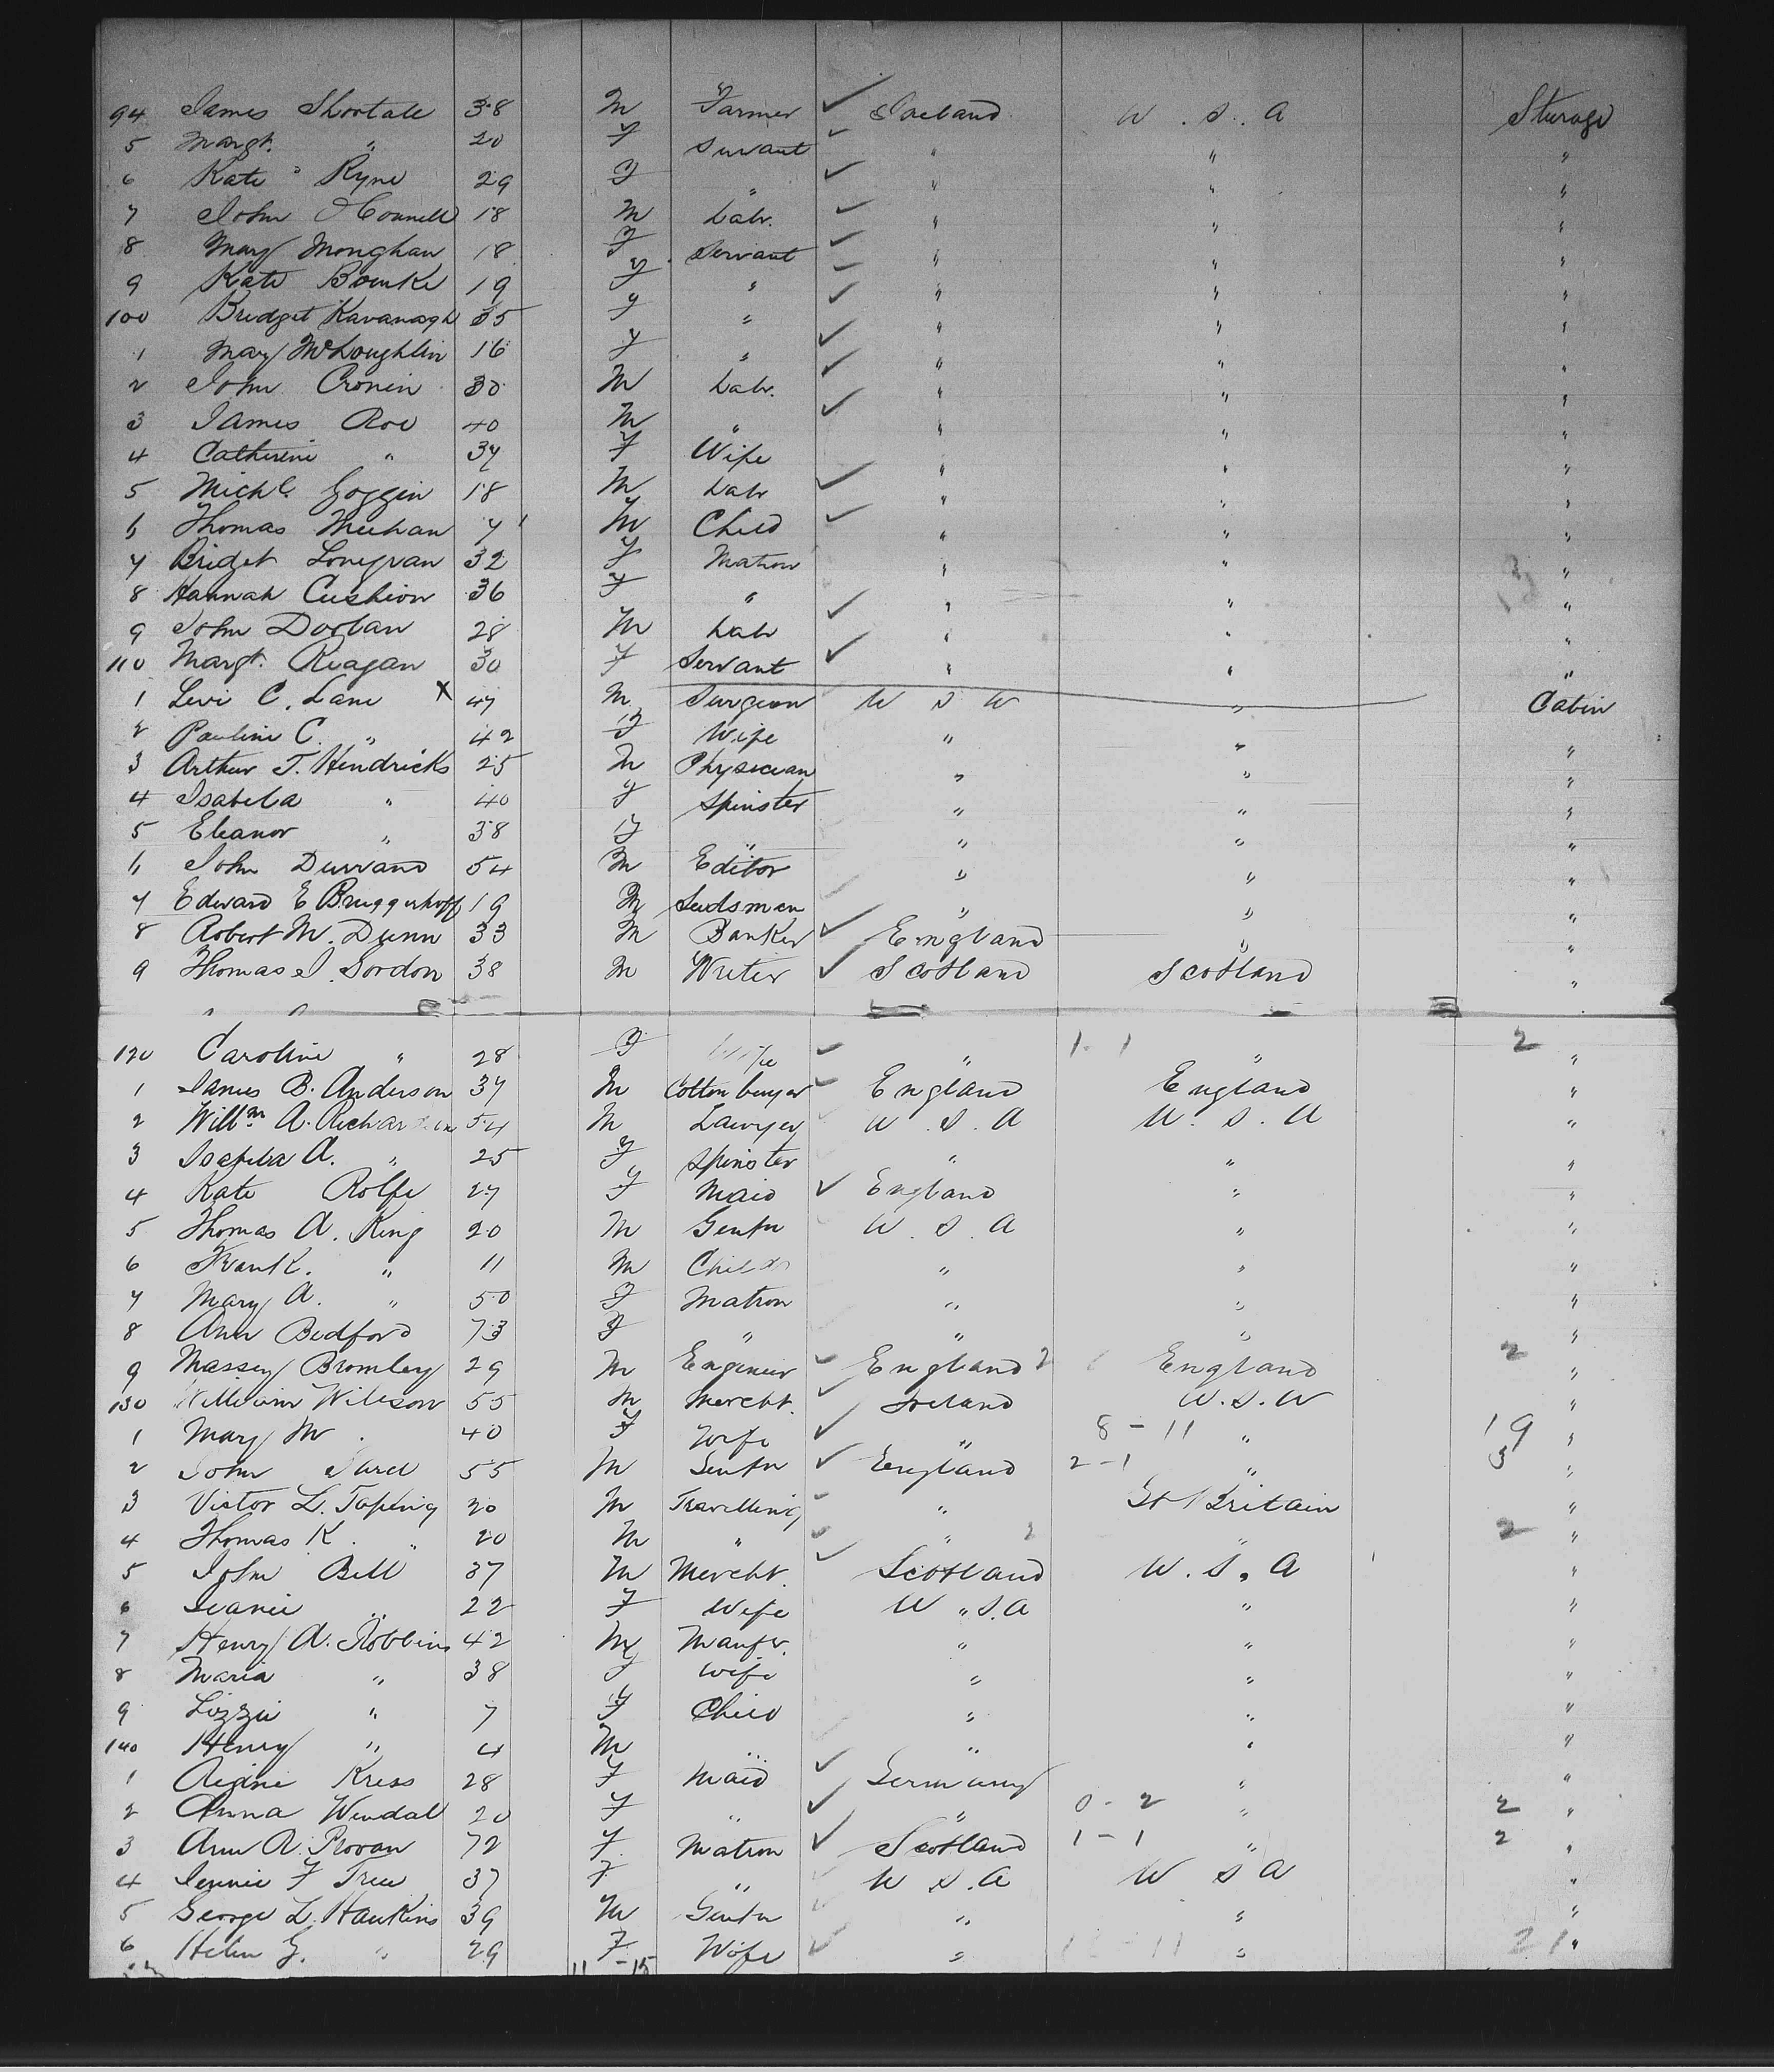 94 James Shortall 38 M Farmer ✓ Ireland U. S. A Steerage
5 Margt. " 20 F Servant ✓ " " "
6 Kate Ryne 29 F " ✓ " " "
7 John O'Connell 18 M Labr. ✓ " " "
8 Mary Monghan 18 F Servant ✓ " " "
9 Kate Bourke 19 F " ✓ " " "
100 Bridget Kavanagh 35 F " ✓ " " "
1 Mary McLoughlin 16 F " ✓ " " "
2 John Cronin 30 M Labr. ✓ " " "
3 James Roe 40 M " ✓ " " "
4 Catherine " 37 F Wife " " "
5 Michl. Goggin 18 M Labr ✓ " " "
6 Thomas Meehan 7 M Child ✓ " " "
7 Bridget Lonegran 32 F Matron " " "
8 Hannah Cushion 36 F " " " "
9 John Doolan 28 M Labr ✓ " " "
110 Margt. Reagan 30 F Servant ✓ " " "
1 Levi C. Lane X 47 M Surgeon U S A " Cabin
2 Pauline C. " 42 F Wife " " "
3 Arthur T. Hendricks 25 M Physician " " "
4 Isabela " 40 F Spinster " " "
5 Eleanor " 38 F " " " "
6 John Durrand 54 M Editor " " "
7 Edward E Bruggerhoff 19 M Seedsman " " "
8 Robert M. Dunn 33 M Banker ✓ England " "
9 Thomas J. Gordon 38 M Writer ✓ Scotland Scotland "
120 Caroline " 28 F Wife ✓ " 1-1 " 2 "
1 James B. Anderson 37 M Cotton buyer ✓ England England "
2 Willm A. Richardson 54 M Lawyer U. S. A U. S. A "
3 Isabela A. " 25 F Spinster " " "
4 Kate Rolfe 27 F Maid ✓ England " "
5 Thomas A. King 20 M Gentn U. S. A " "
6 Frank. " 11 M Child " " "
7 Mary A. " 50 F Matron " " "
8 Ann Bedford 73 F " " " "
9 Massey Bromley 29 M Engineer ✓ England 2 England 2 "
130 William Willson 55 M Mercht. ✓ Ireland U. S. A "
1 Mary M. 40 F Wife ✓ " 8-11 " 19 "
2 John 55 M Gentn ✓ England 2-1 " 3 "
3 Victor L. Tapling 20 M Travelling ✓ " Gt Britain "
4 Thomas K. " 20 M " ✓ " 2 " 2 "
5 John Bell 37 M Mercht. ✓ Scotland U. S. A "
6 Jeanie " 22 F Wife U. S. A " "
7 Henry A. Robbins 42 M Manfr. " " "
8 Maria " 38 F Wife " " "
9 Lizzie " 7 F Child " " "
140 Henry " 4 M " " " "
1 Regine Kress 28 F Maid ✓ Germany " "
2 Anna Wendal 20 F " ✓ " 0-2 " 2 "
3 Ann A. Provan 72 F Matron ✓ Scotland 1-1 " 2 "
4 Jennie F Tree 37 F " U. S. A U S A "
5 George L. Hankins 39 M Gentn " " "
6 Helen G. " 29 F Wife ✓ " 11 " 21 "
11-15